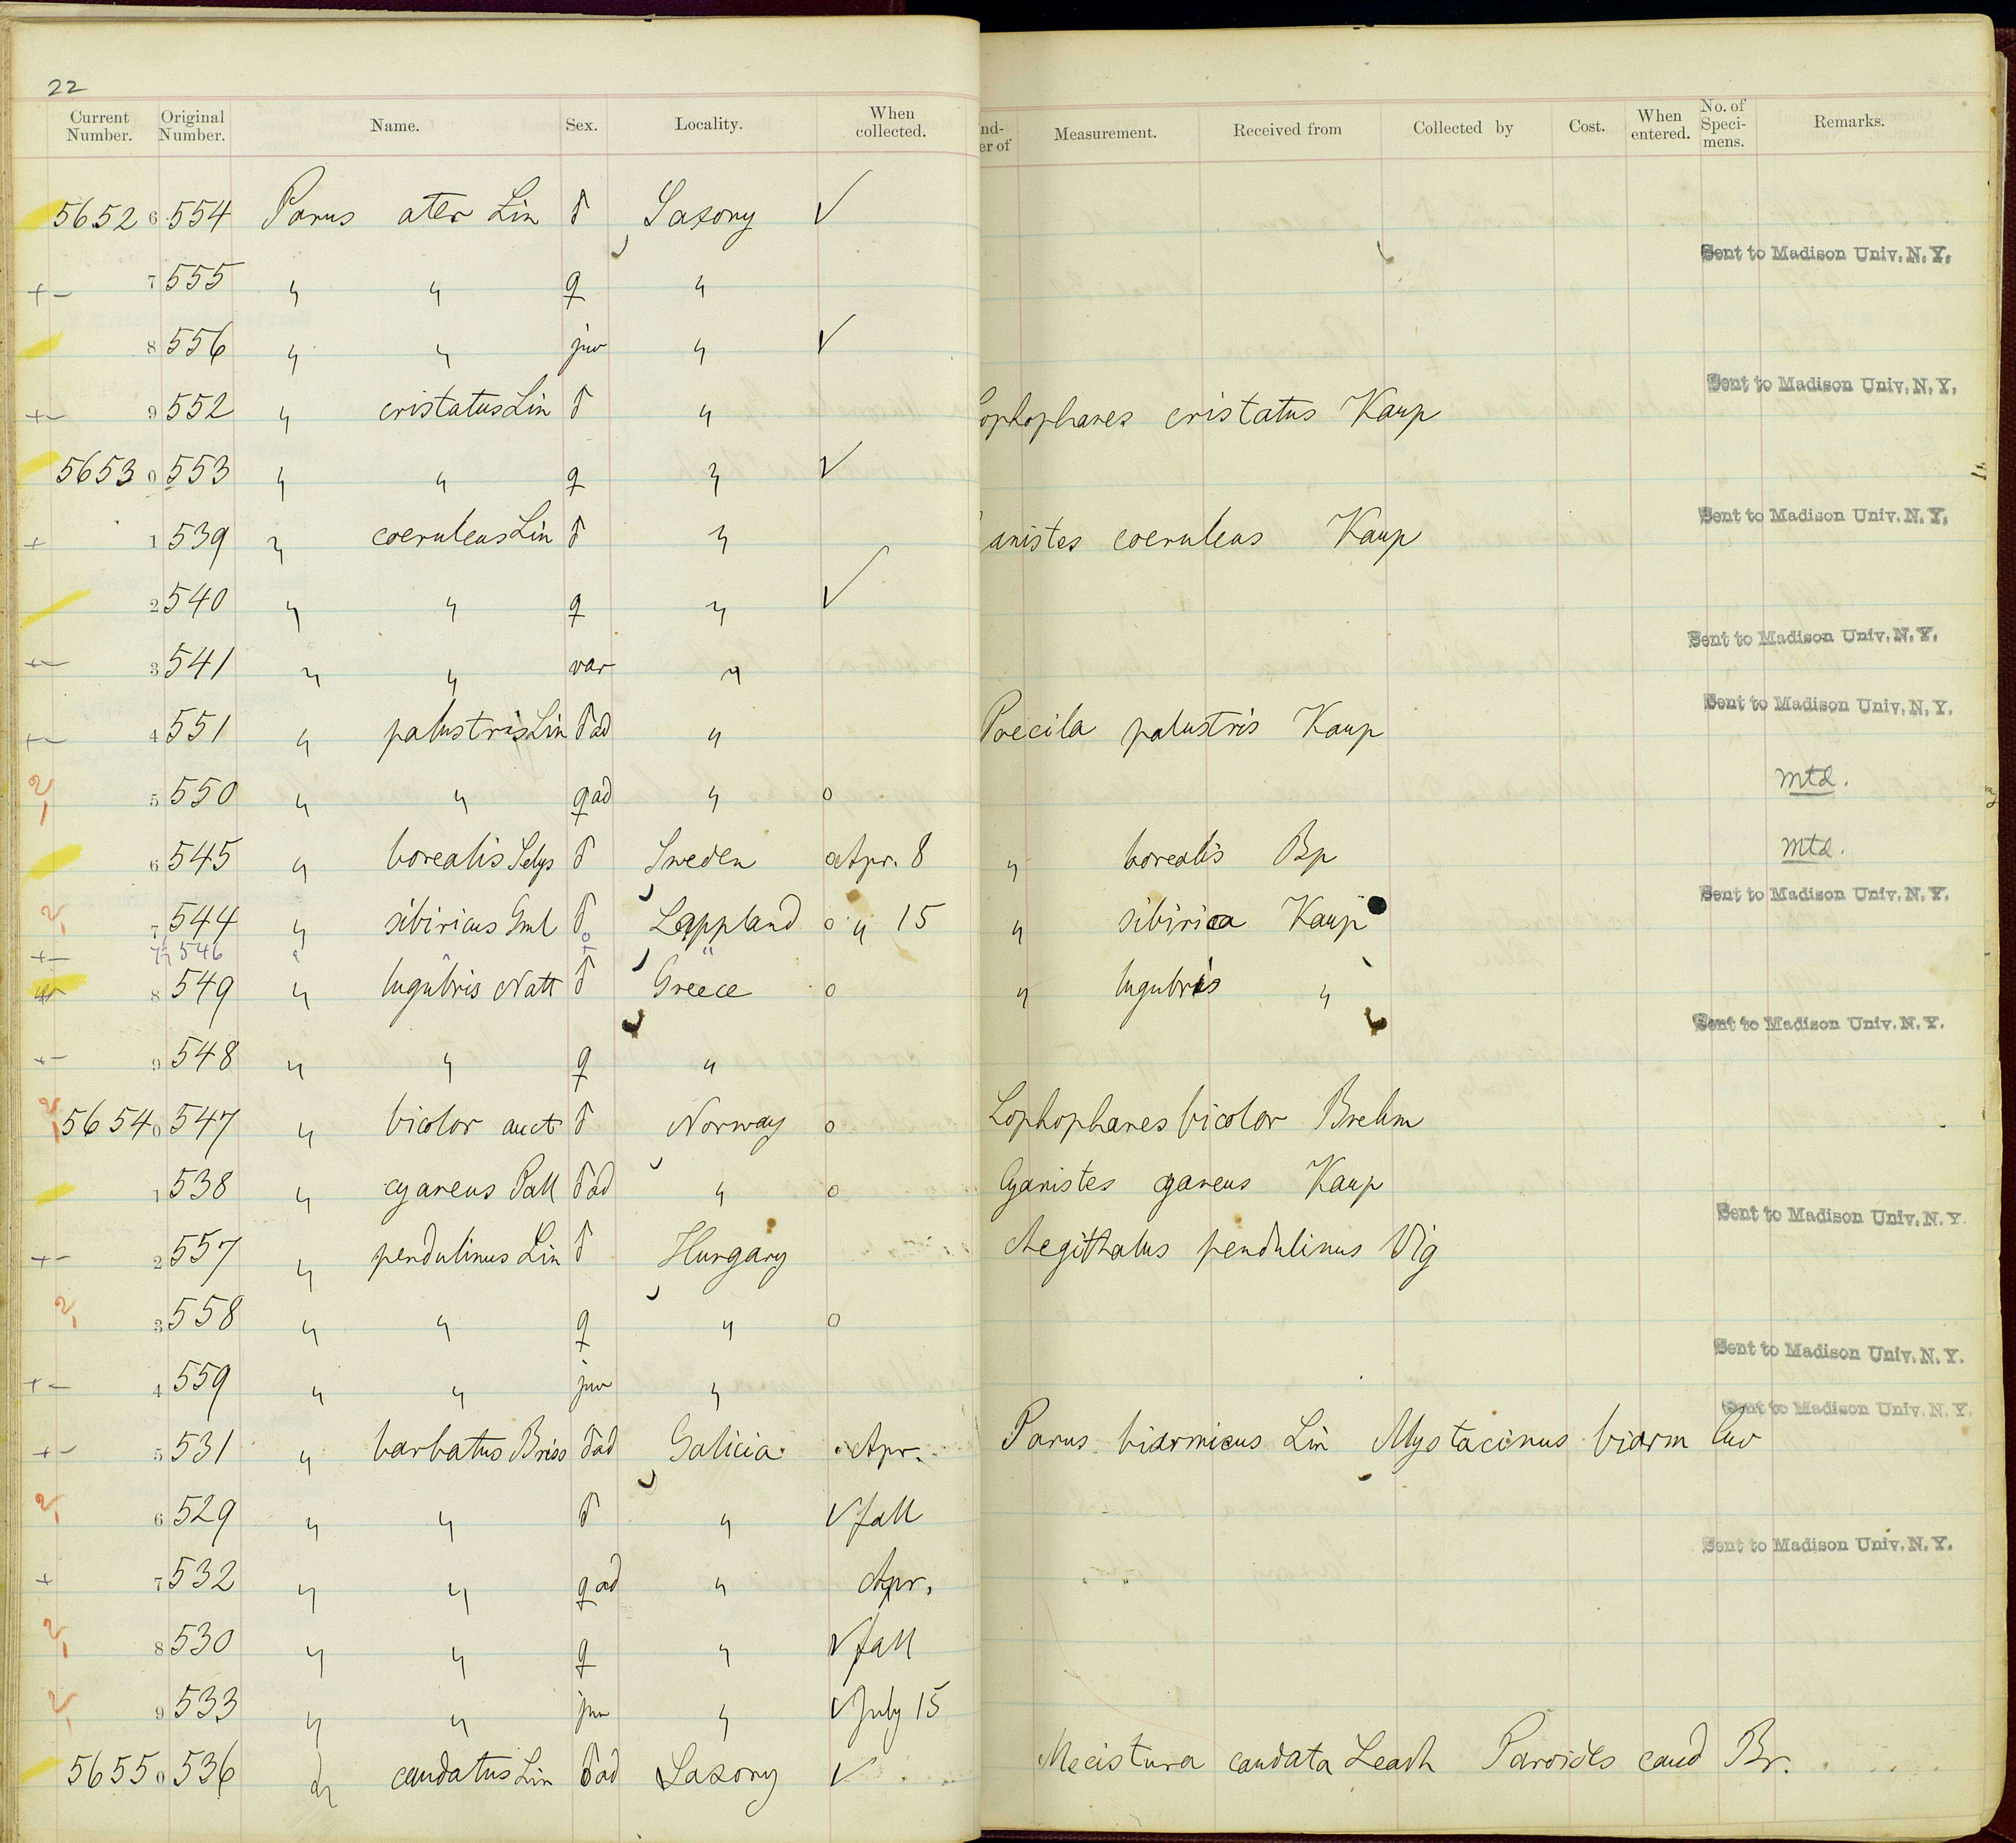 22
Current Number. Original Number. Name. Sex. Locality. When collected. nd- er of Measurement. Received from Collected by Cost. When entered. No. of Speci- mens. Remarks.
5652 6 554 Parus ater Lin ♂ Saxony ✓
Sent to Madison Univ. N. Y.
+ – 7 555 " " ♀ "
8 556 " " juv " ✓
Sent to Madison Univ. N. Y.
+ – 9 552 " cristatus Lin ♂ " ophophanes cristatus Kaup
5653 0 553 " " ♀ " ✓
Sent to Madison Univ. N. Y.
+ 1 539 " coeruleus Lin ♂ " anistes coeruleus Kaup
2 540 " " ♀ " ✓
Sent to Madison Univ. N. Y.
+ – 3 541 " " var "
Sent to Madison Univ. N. Y.
+ – 4 551 " palustris Lin ♂ ad " Poecila palustris Kaup
2 5 550 " " ♀ ad " o mtd.
6 545 " borealis Selys ♂ Sweden o Apr. 8 " borealis Bp mtd.
Sent to Madison Univ. N. Y.
2 7 544 " sibiricus Gml ♂ Lappland o " 15 " sibirica Kaup
+ – 7½ 546 " ♀ "
8 549 " lugubris Natt ♂ Greece o " lugubris "
Sent to Madison Univ. N. Y.
+ – 9 548 " " ♀ "
2 5654 0 547 " bicolor auct ♂ Norway o Lophophanes bicolor Brehm
1 538 " cyaneus Pall ♂ ad " o Cyanistes cyaneus Kaup
Sent to Madison Univ. N. Y.
+ – 2 557 " pendulinus Lin ♂ Hungary Aegithalus pendulinus Vig
2 3 558 " " ♀ " o
Sent to Madison Univ. N. Y.
+ – 4 559 " " juv "
Sent to Madison Univ. N. Y.
+ – 5 531 " barbatus Briss ♂ ad Galicia Apr. Parus biarmicus Lin Mystacinus biarm Cuv
2 6 529 " " ♂ " ✓ fall
Sent to Madison Univ. N. Y.
+ 7 532 " " ♀ ad " Apr.
2 8 530 " " ♀ " ✓ fall
2 9 533 " " juv " ✓ July 15
5655 0 536 " caudatus Lin ♂ ad Saxony ✓ Mecistura caudata Leach Paroides caud Br.